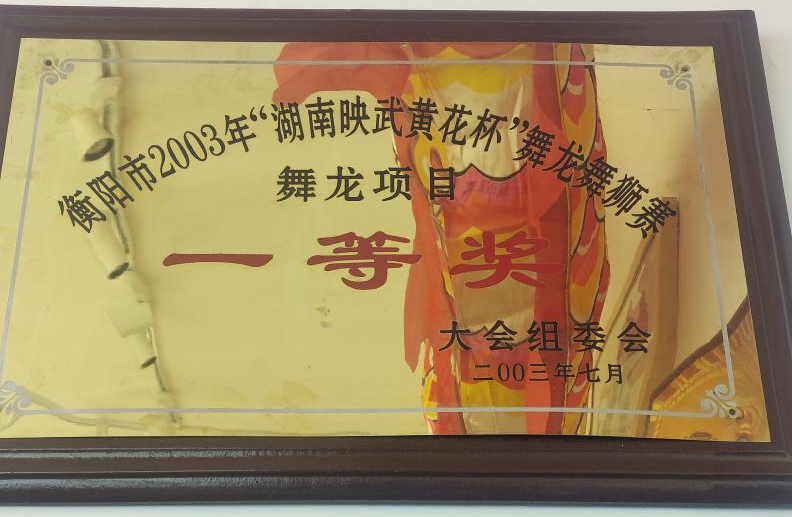 衡阳市2003年“湖南映武黄花杯”舞龙舞狮赛
舞龙项目
一等奖
大会组委会
二00三年七月